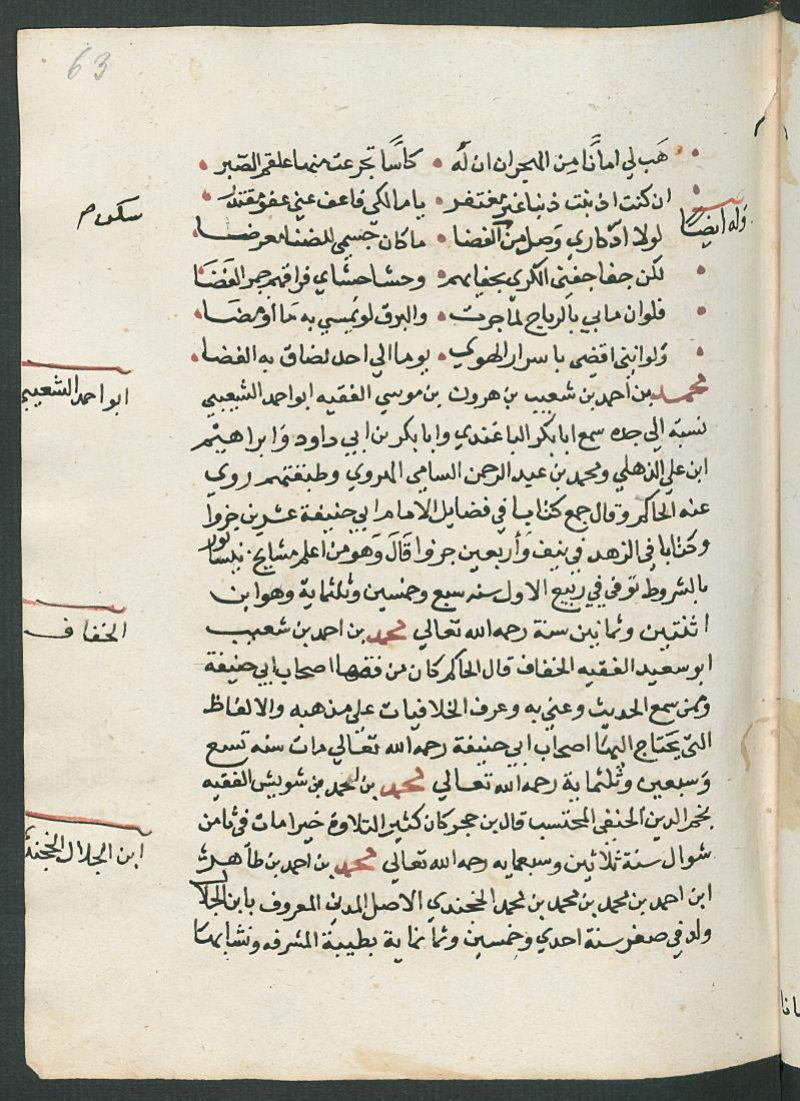 63
هَب لي امانًا مِن الهجران ان لَه • كاسًا تجرعت منها علقم الصبر •
ان كنت اذنبت ذنبا غير مغتفر • يا مالكي فاعف عني عفو مقتدر •
وله ايضا
لولا ادّكاري وصل من الغضا • ما كان جسمي للضنا معرضا
سكن صر
لكن جفا جفني الكري بجفايهم • وحشا حشاي فراقهم جمر الغضا
فلوان ما بي بالرياح لما جرت • والبرق لو يمسي به ما اومضا •
ولوانني اقضي باسرار الهوي • يوما الي احد لضاق به الفضا •
محمد بن احمد بن شعيب بن هرون بن موسي الفقيه ابو احمد الشعيبي
ابو احمد الشعيبي
نسبة الي جده سمع ابا بكر الباغندي وابا بكر بن ابي داود وابراهيم
ابن علي الذهلي ومحمد بن عبد الرحمن السامي الهروي وطبقتهم روي
عنه الحاكم وقال جمع كتابا في فضايل الامام ابي حنيفة عشرين جزوا
وكتابا في الزهد في نيف واربعين جزوا قال وهو من اعلم مشايخ نيسابور
بالشروط توفي في ربيع الاول سنه سبع وخمسين وثلثماية وهو ابن
اثنتين وثمانين سنة رحمه الله تعالي محمد بن احمد بن شعيب
الخفاف
ابو سعيد الفقيه الخفاف قال الحاكم كان من فقها اصحاب ابي حنيفة
وممن سمع الحديث وعني به وعرف الخلافيات علي مذهبه والالفاظ
التي يحتاج اليها اصحاب ابي حنيفة رحمه الله تعالي مات سنه تسع
وسبعين وثلثماية رحمه الله تعالي محمد بن احمد بن شويش الفقيه
نجم الدين الحنفي المحتسب قال بن حجر كان كثير التلاوة خيرا مات في ثامن
شوال سنة ثلاثين وسبعمايه رحمه الله تعالي محمد بن احمد بن طاهر
ابن الجلال الخجندي
ابن احمد بن محمد بن محمد بن محمد الخجندي الاصل المدني المعروف بابن الجلال
ولد في صفر سنة احدي وخمسين وثمانماية بطيبة المشرفه ونشا بها